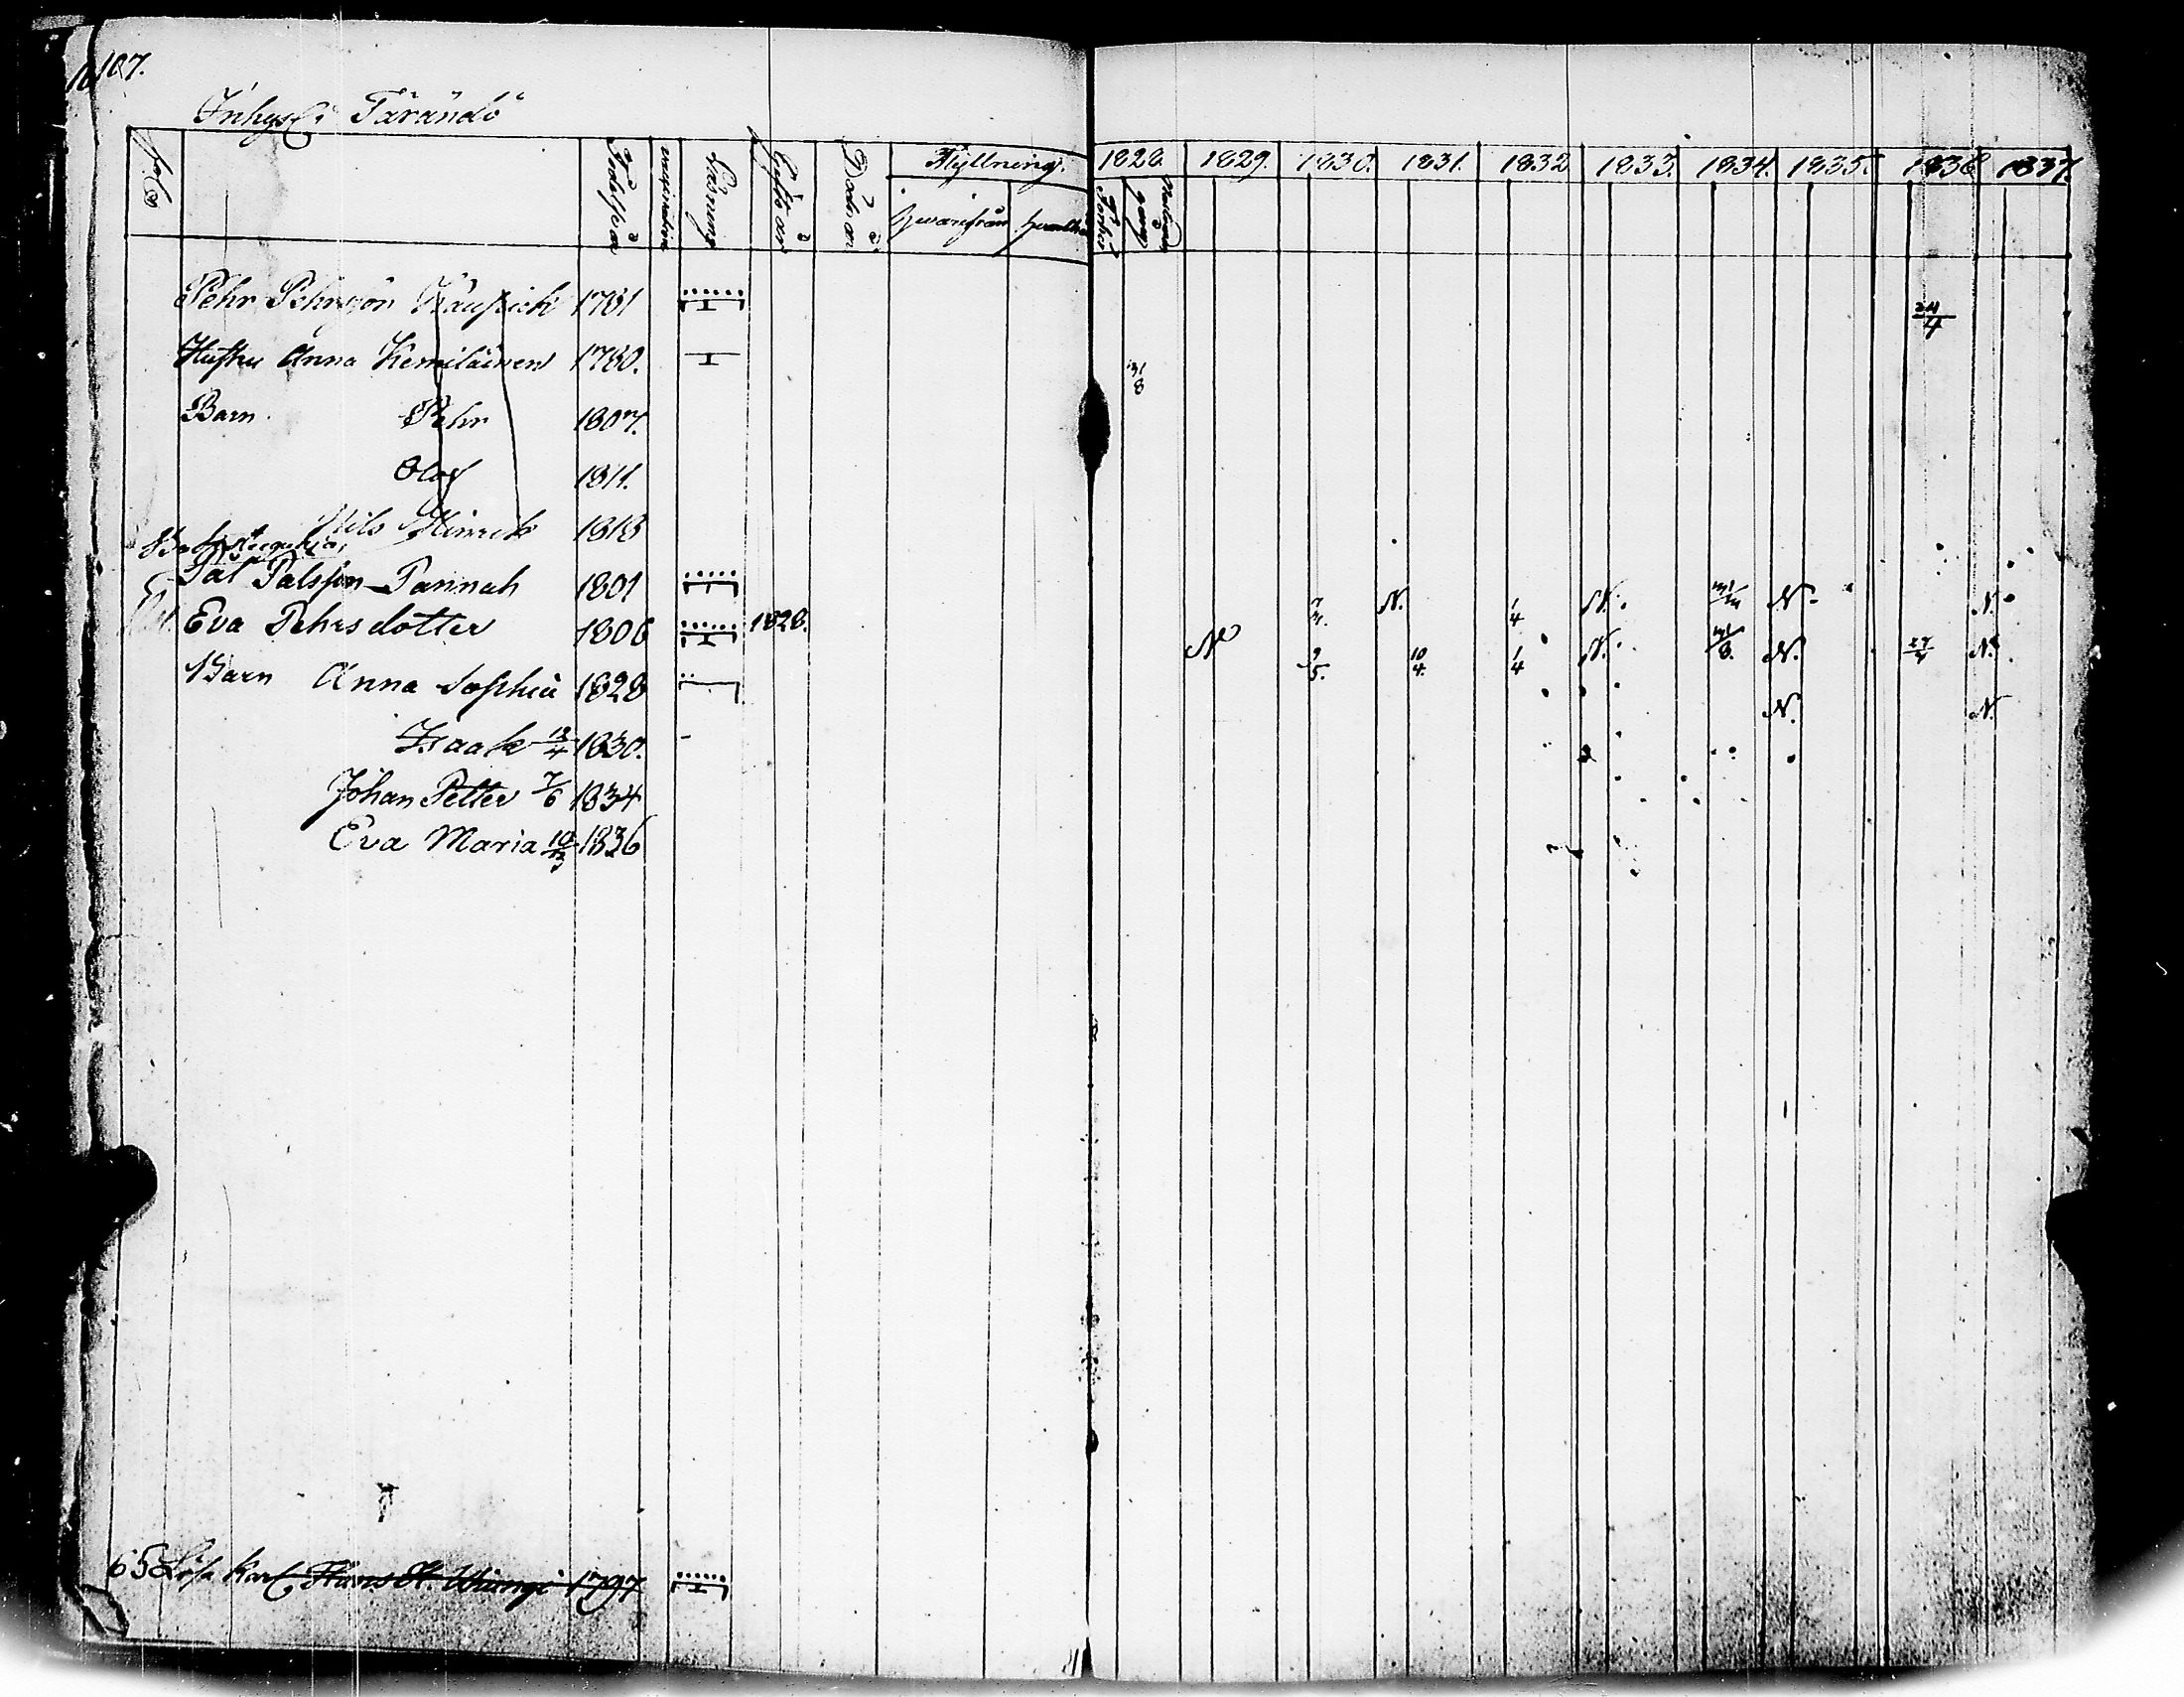 107.
Inhyse i Tärändö
Fol.
Födelseår
Läsning
Gift år
Död år
Flyttning.
hvarifrån
1828 1829. 1830. 1831. 1832 1833. 1834. 1835. 1836 1837.
Pehr Pehrsson 1781 24/4
Hustru Anna Kemiläinen 1780. 31/8
Barn. Pehr 1807.
Olof 1811.
Nils Hinrik 1818
Pål Pålsson Pannah 1801 N. 1/4 N. N. N.
Eva Pehrsdotter 1806 1828. N 9/5. 10/4. 1/4 N. N. 27/4 N.
Barn Anna Sophia 1828 N. N.
Isaak 13/4 1830.
Johan Petter 7/6 1834
Eva Maria 1836
65 Lösa Karl Hans H. 1797